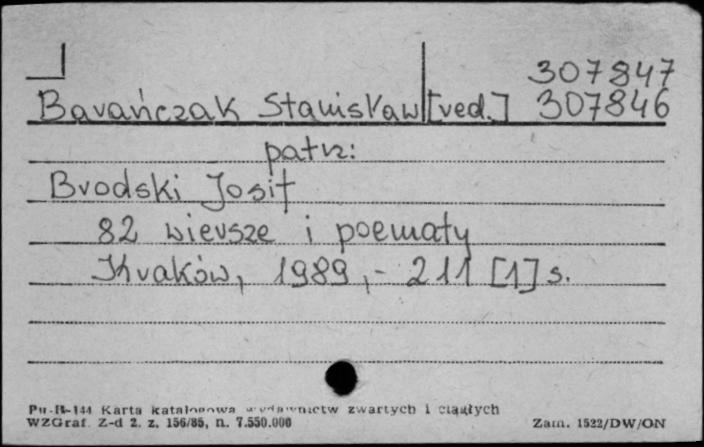 307847
Barańczak Stanisław [red.] 307846
patrz:
Brodski Josif
82 wiersze i poematy
Kraków, 1989,- 211 [1] s.
Pu-B-144 Karta katalogowa wydawnictw zwartych i ciągłych
WZGraf. Z-d 2. z. 156/85, n. 7.550.000 Zam. 1522/DW/ON